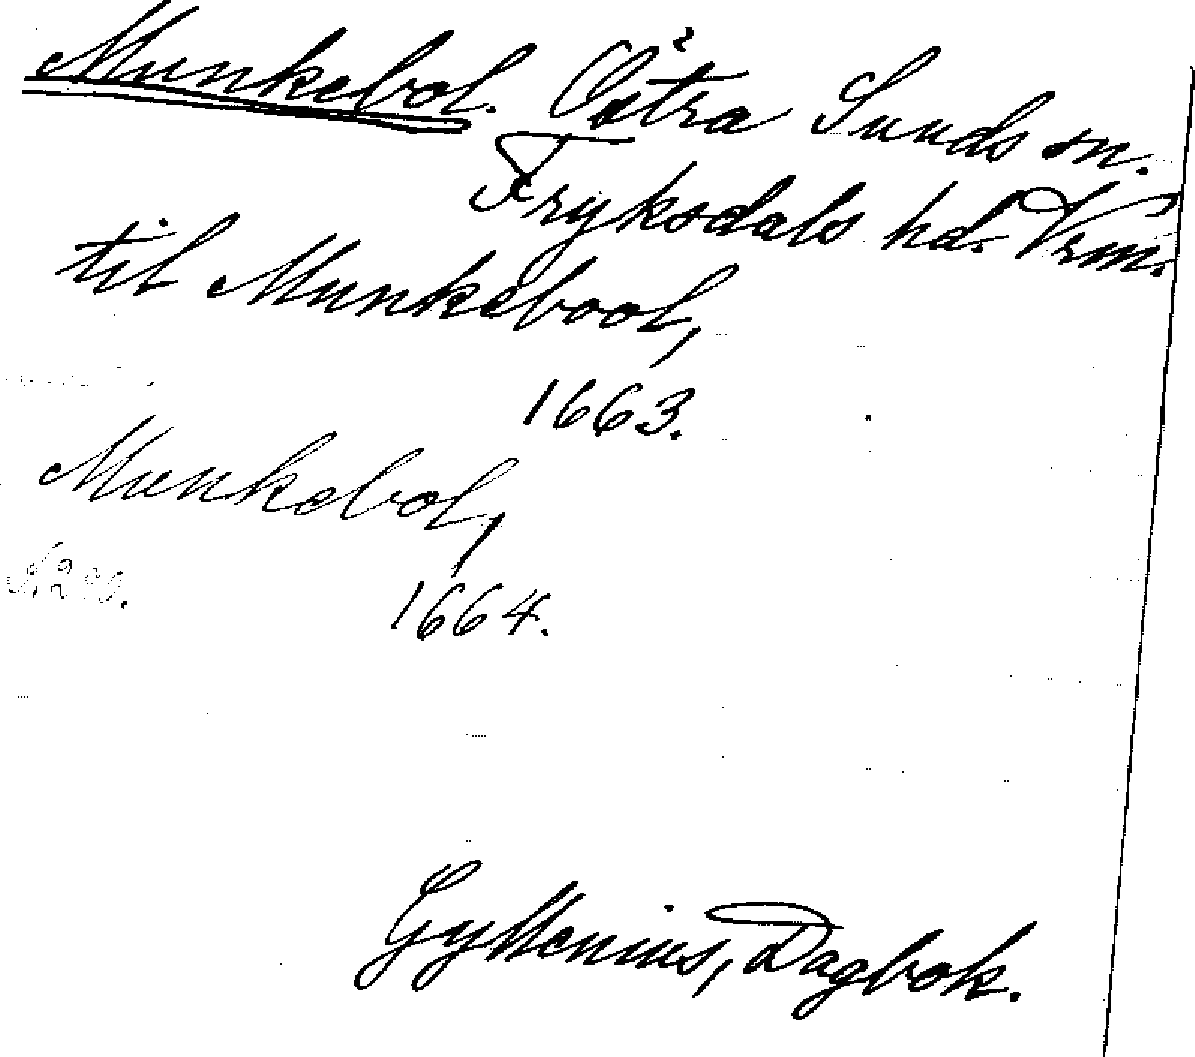 Munkebol. Östra Sunds sn.
Fryksdals hd. Vrm.
til Munkebool,
1663.
Munkebol,
1664.
Gyllenius, Dagbok.